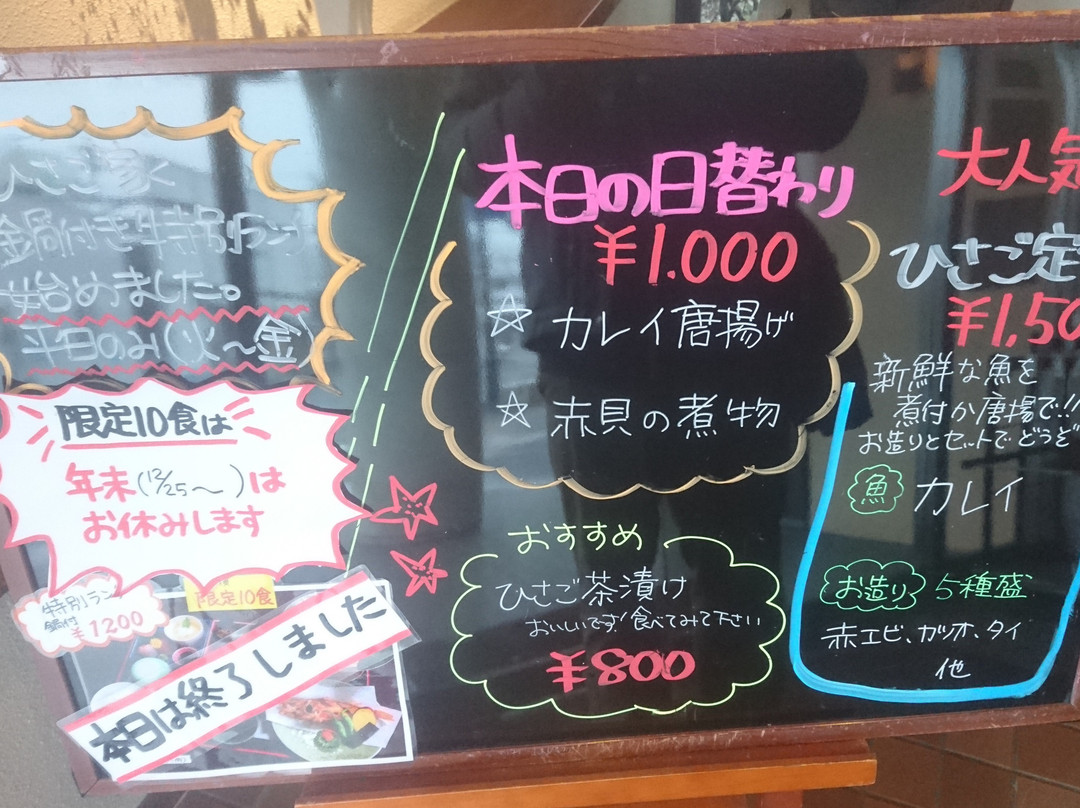 ひさご家で
金鍋付き特別ラン
始めました。
平日のみ(火～金)
限定10食は
年末(12/25～ )は
お休みします
特別ラン
鍋付
¥1200
限定10食
本日は終了しました
本日の日替わり
¥1.000
☆ カレイ唐揚げ
☆ 赤貝の煮物
おすすめ
ひさご茶漬け
おいしいです!食べてみて下さい
¥800
大人気
ひさご定
¥1,50
新鮮な魚を
煮付か唐揚で!!
お造りとセットでどうぞ
魚 カレイ
お造り 5種盛
赤エビ、カツオ、タイ
他